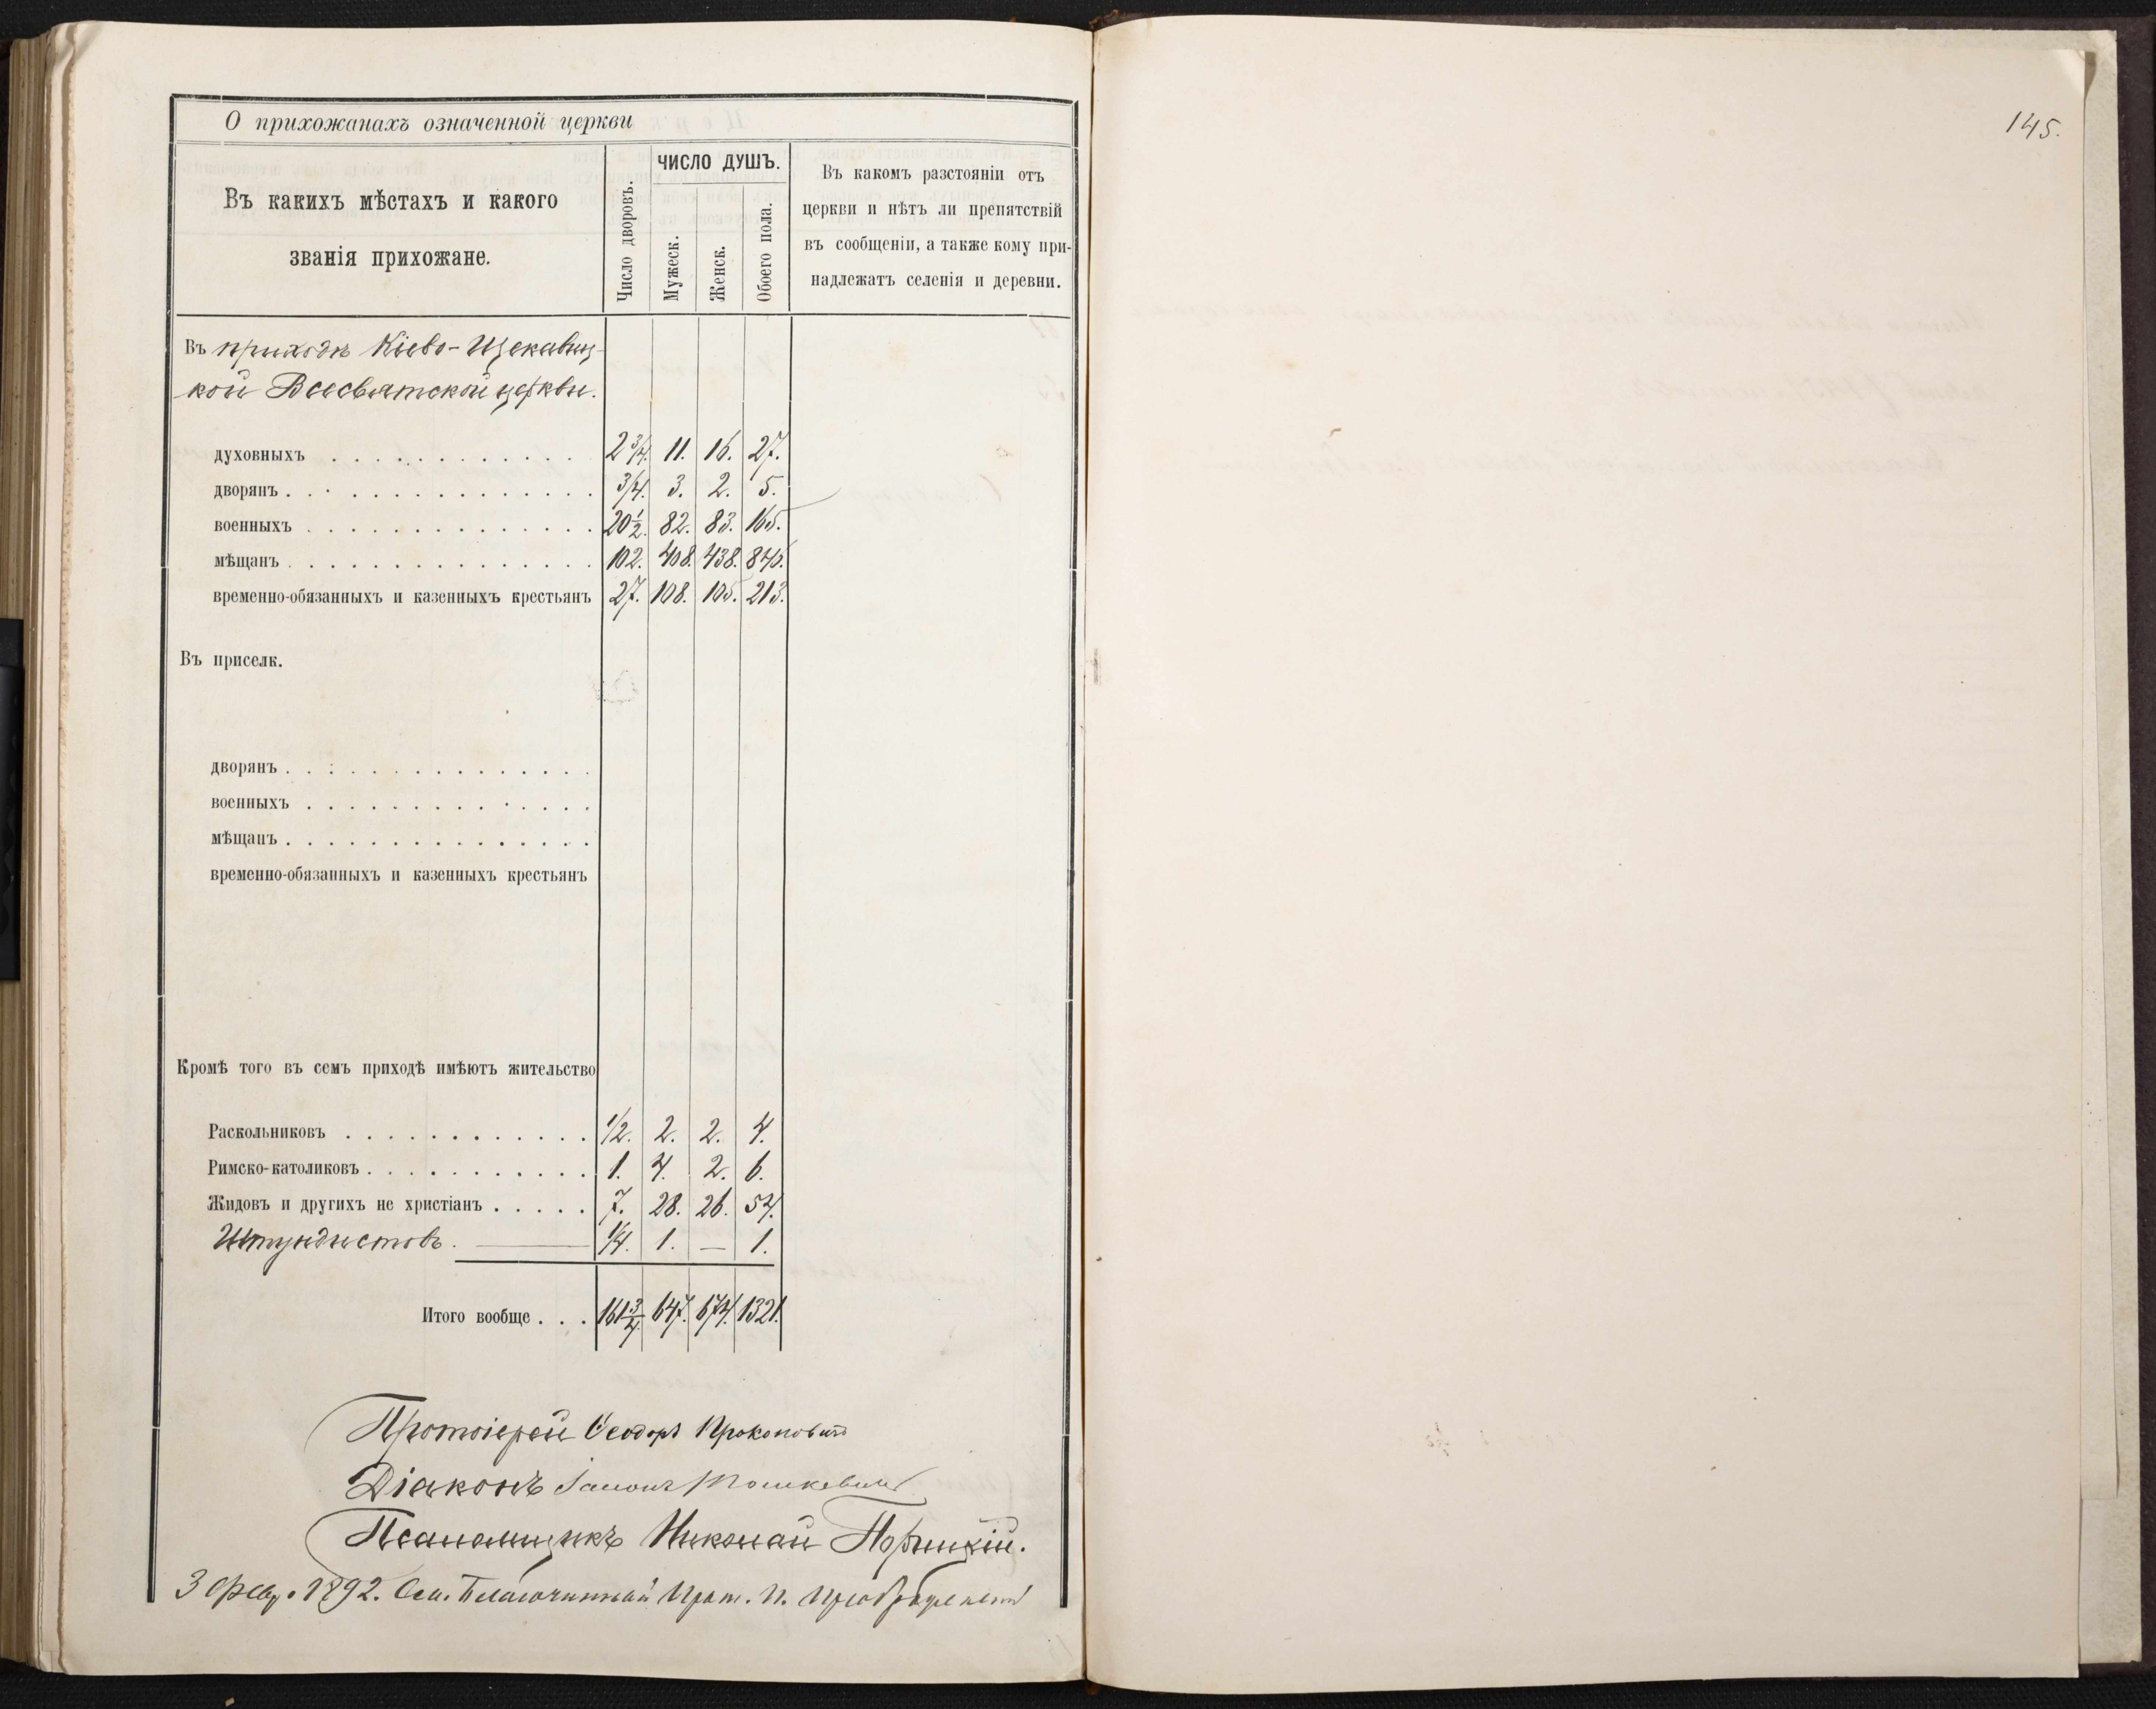 О прихожанахъ означенной церкви
Въ какихъ мѣстахъ и какого
званія прихожане.
Число дворовъ.
ЧИСЛО ДУШЪ.
Мужеск.
Женск.
Обоего пола.
Въ какомъ разстояніи отъ
церкви и нѣтъ ли препятствій
въ сообщеніи, а также кому при-
надлежатъ селенія и деревни.
Въ приходѣ Кіево-Щекавиц-
кой Всесвятской церкви.
духовныхъ . . . . . . . . . . . . 2 3/4. 11. 16. 27.
дворянъ . . . . . . . . . . . . . . . 3/4. 3. 2. 5.
военныхъ . . . . . . . . . . . . . . 20 1/2. 82. 83. 165.
мѣщанъ . . . . . . . . . . . . . . . 102. 408. 438. 846.
временно-обязанныхъ и казенныхъ крестьянъ 27. 108. 105. 213.
Въ приселк.
дворянъ . . . . . . . . . . . . . . .
военныхъ . . . . . . . . . . . . . .
мѣщанъ . . . . . . . . . . . . . . .
временно-обязанныхъ и казенныхъ крестьянъ
Кромѣ того въ семъ приходѣ имѣютъ жительство
Раскольниковъ . . . . . . . . . . . . 1/2. 2. 2. 4.
Римско-католиковъ . . . . . . . . . . . 1. 4. 2. 6.
Жидовъ и другихъ не христіанъ . . . . . 7. 28. 26. 54.
Штундистовъ. 1/4. 1. — 1.
Итого вообще . . . 161 3/4. 647. 674. 1321.
Протоіерей Ѳеодоръ Прокоповичъ
Діаконъ
Псаломщикъ Николай
3 Февр. 1892. Благочинный Прот. П. Преображенскій
145.